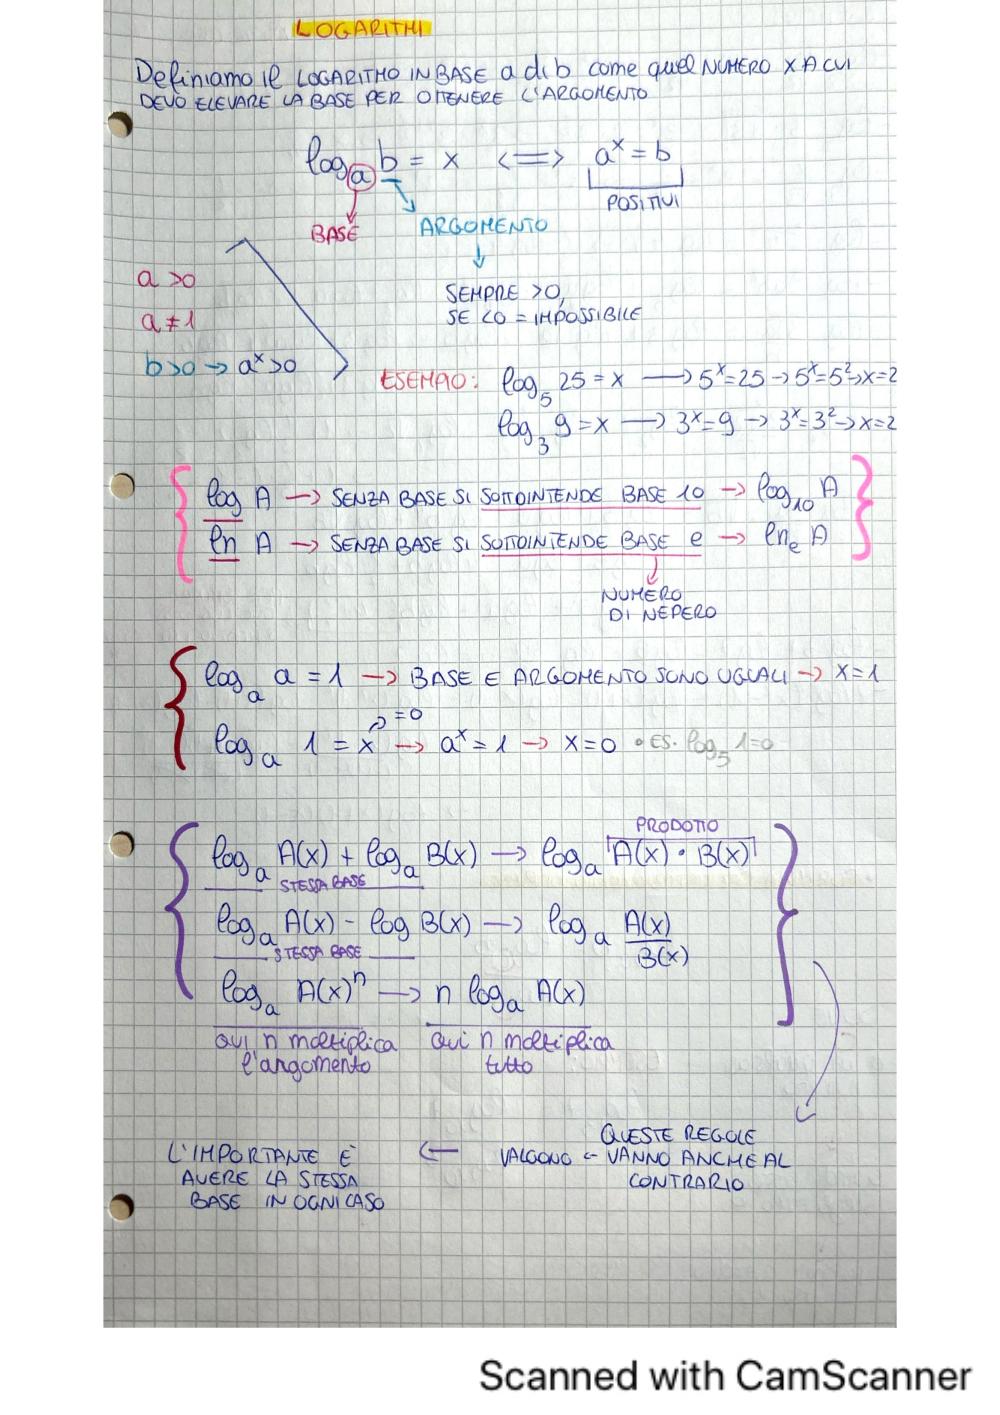 LOGARITMI
Definiamo il LOGARITMO IN BASE a di b come quel NUMERO X A CUI
DEVO ELEVARE LA BASE PER OTTENERE L'ARGOMENTO
logₐ b = x <=> aˣ = b
POSITIVI
BASE
ARGOMENTO
a >0
a ≠ 1
b>0 → aˣ>0
SEMPRE >0,
SE <0 = IMPOSSIBILE
ESEMPIO: log₅ 25 = x → 5ˣ=25 → 5ˣ=5² → x=2
log₃ 9 = x → 3ˣ=9 → 3ˣ=3² → x=2
log A → SENZA BASE SI SOTTOINTENDE BASE 10 → log₁₀ A
ln A → SENZA BASE SI SOTTOINTENDE BASE e → lnₑ A
NUMERO
DI NEPERO
logₐ a = 1 → BASE E ARGOMENTO SONO UGUALI → x=1
=0
logₐ 1 = x → aˣ = 1 → x=0 • ES. log₅ 1=0
PRODOTTO
logₐ A(x) + logₐ B(x) → logₐ A(x) · B(x)
STESSA BASE
logₐ A(x) - log B(x) → logₐ A(x)/B(x)
STESSA BASE
logₐ A(x)ⁿ → n logₐ A(x)
qui n moltiplica qui n moltiplica
l'argomento tutto
QUESTE REGOLE
VALGONO ← VANNO ANCHE AL
CONTRARIO
← L'IMPORTANTE È
AVERE LA STESSA
BASE IN OGNI CASO
Scanned with CamScanner